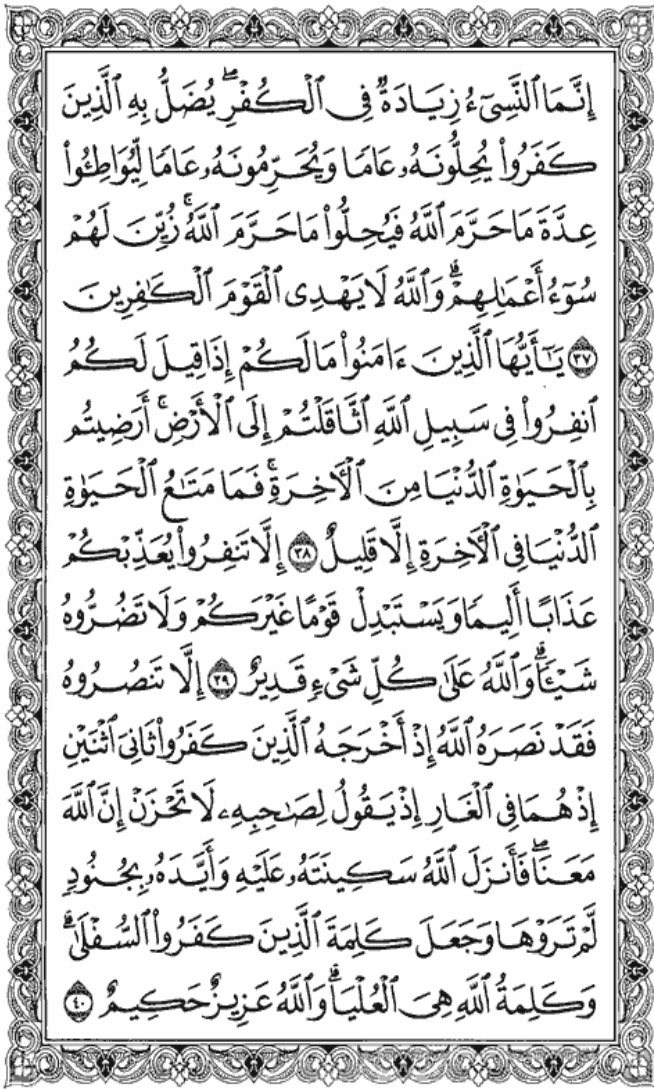 إِنَّمَا ٱلنَّسِىٓءُ زِيَادَةٌ فِى ٱلْكُفْرِ ۖ يُضَلُّ بِهِ ٱلَّذِينَ
كَفَرُوا۟ يُحِلُّونَهُۥ عَامًا وَيُحَرِّمُونَهُۥ عَامًا لِّيُوَاطِـُٔوا۟
عِدَّةَ مَا حَرَّمَ ٱللَّهُ فَيُحِلُّوا۟ مَا حَرَّمَ ٱللَّهُ ۚ زُيِّنَ لَهُمْ
سُوٓءُ أَعْمَـٰلِهِمْ ۗ وَٱللَّهُ لَا يَهْدِى ٱلْقَوْمَ ٱلْكَـٰفِرِينَ
٣٧ يَـٰٓأَيُّهَا ٱلَّذِينَ ءَامَنُوا۟ مَا لَكُمْ إِذَا قِيلَ لَكُمُ
ٱنفِرُوا۟ فِى سَبِيلِ ٱللَّهِ ٱثَّاقَلْتُمْ إِلَى ٱلْأَرْضِ ۚ أَرَضِيتُم
بِٱلْحَيَوٰةِ ٱلدُّنْيَا مِنَ ٱلْـَٔاخِرَةِ ۚ فَمَا مَتَـٰعُ ٱلْحَيَوٰةِ
ٱلدُّنْيَا فِى ٱلْـَٔاخِرَةِ إِلَّا قَلِيلٌ ٣٨ إِلَّا تَنفِرُوا۟ يُعَذِّبْكُمْ
عَذَابًا أَلِيمًا وَيَسْتَبْدِلْ قَوْمًا غَيْرَكُمْ وَلَا تَضُرُّوهُ
شَيْـًٔا ۗ وَٱللَّهُ عَلَىٰ كُلِّ شَىْءٍ قَدِيرٌ ٣٩ إِلَّا تَنصُرُوهُ
فَقَدْ نَصَرَهُ ٱللَّهُ إِذْ أَخْرَجَهُ ٱلَّذِينَ كَفَرُوا۟ ثَانِىَ ٱثْنَيْنِ
إِذْ هُمَا فِى ٱلْغَارِ إِذْ يَقُولُ لِصَـٰحِبِهِۦ لَا تَحْزَنْ إِنَّ ٱللَّهَ
مَعَنَا ۖ فَأَنزَلَ ٱللَّهُ سَكِينَتَهُۥ عَلَيْهِ وَأَيَّدَهُۥ بِجُنُودٍ
لَّمْ تَرَوْهَا وَجَعَلَ كَلِمَةَ ٱلَّذِينَ كَفَرُوا۟ ٱلسُّفْلَىٰ ۗ
وَكَلِمَةُ ٱللَّهِ هِىَ ٱلْعُلْيَا ۗ وَٱللَّهُ عَزِيزٌ حَكِيمٌ ٤٠